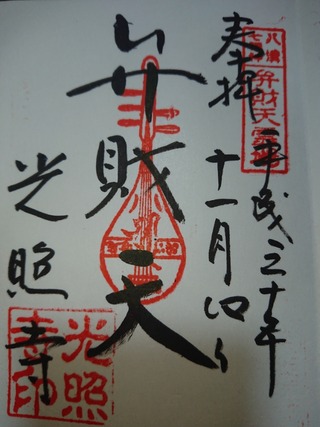 奉拝
平成三十年
十一月四日
弁財天
光照寺
弁財天霊場
光照
寺印